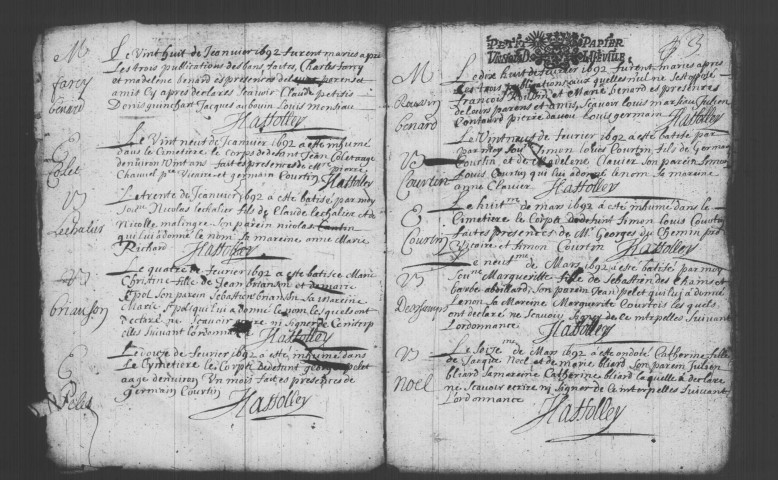 M
farcy
benard
Le Vint huit de Jeanvier 1692 furent mariés apres
Les trois publications des bans, faites, Charles farcy
et madelene benard es presences de leurs parens et
amis Cy apres declares scavoir Claude petitis
Denis guinchart Jacques aubouin Louis monsiau
Hattolley
E
Colet
Le Vint neuf de Jeanvier 1692 a esté inhumé
dans le Cimetiere le corps de defunt Jean Colet aage
denviron vint ans fait es presences de Mre pierre
Chauvel ptre Vicaire et germain Courtin Hattolley
V
Lechalier
Le trente de Jeanvier 1692 a esté batisé par moy
Nicolas lechalier fils de Claude lechalier et de
Nicolle malinge son parein nicolas
qui luy a donné le nom Sa mareine anne Marie
Richard Hattolley
V
brianson
Le quatre de fevrier 1692 a esté batisée Marie
Christine fille de Jean brianson et de marie
pol son parein Sebastien brianson Sa mareine
Marie qui luy a donné le nom lesquels ont
declaré ne scavoir ni signer de ce interp
elles suivant lordonnance
Hattolley
E
Polet
Le douze de fevrier 1692 a esté inhumé dans
Le Cymetiere le Corps de defunt george polet
aage denviron Un mois fait es presences de
germain Courtin
Hattolley
PETIT PAPIER
3
M
Roussin
benard
Le dix huit de fevrier 1692 furent mariés apres
les trois publications aus quelles nul ne sest oposé
François et Marie benard es presences
de leurs parens et amis, scavoir louis marsiau Julien
Contaurd pierre davou louis germain Hattolley
V
Courtin
Le Vint neuf de fevrier 1692 a esté batisé par
par moy Simon louis Courtin fils de Germain
Courtin et de Magdelene Clavier son parein Simon
Louis Courtin qui luy a donné le nom la mareine
anne Clavier Hattolley
E
Courtin
Le huit me de mars 1692 a esté inhumé dans le
Cimetiere le Corps de defunt Simon Louis Courtin
fait es presences de Mr Georges du Chemin ptre
Vicaire et Simon Courtin Hattolley
V
Deschamps
Le neuf me de Mars 1692 a esté batisé par moy
Marguerite fille de Sebastien des Champs et
barbe son parein Jean pelet qui luy a donné
le nom la Mareine Marguerite Courtois les quels
ont declaré ne scavoir signer de ce interpelés suivant
lordonnance
Hattolley
V
NOEL
Le de Mars 1692 a esté ondoyé Catherine fille
de Jacque Noel et de marie bliard son parein Julien
bliard Sa mareine Catherine bliard laquelle a declaré
ne scavoir ecrire ni signer de ce interpelles suivant
lordonnance
Hattolley